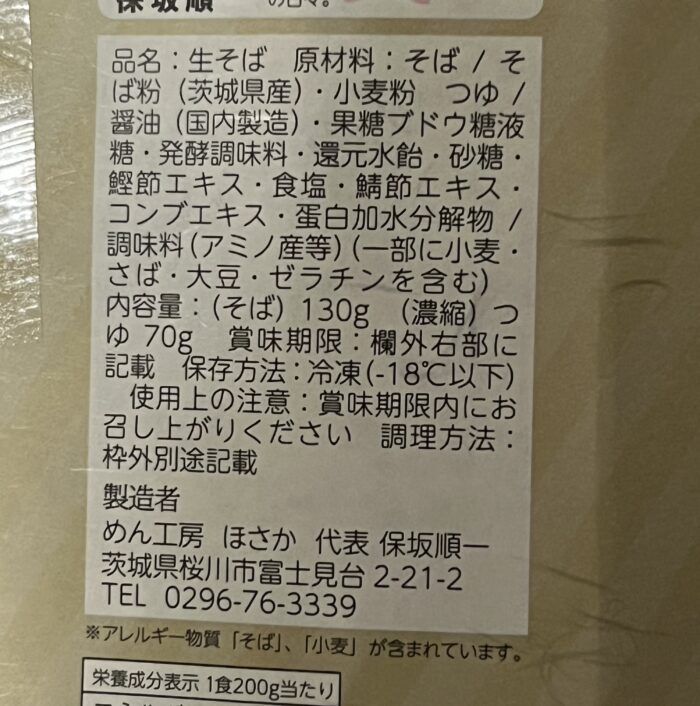 保坂順
の日々。
品名：生そば　原材料：そば / そ
ば粉（茨城県産）・小麦粉　つゆ /
醤油（国内製造）・果糖ブドウ糖液
糖・発酵調味料・還元水飴・砂糖・
鰹節エキス・食塩・鯖節エキス・
コンブエキス・蛋白加水分解物 /
調味料（アミノ産等）（一部に小麦・
さば・大豆・ゼラチンを含む）
内容量：（そば）130g　（濃縮）つ
ゆ 70g　賞味期限：欄外右部に
記載　保存方法：冷凍（-18℃以下）
　使用上の注意：賞味期限内にお
召し上がりください　調理方法：
枠外別途記載
製造者
めん工房　ほさか　代表 保坂順一
茨城県桜川市富士見台 2-21-2
TEL　0296-76-3339
※アレルギー物質「そば」、「小麦」が含まれています。
栄養成分表示 1食200g当たり